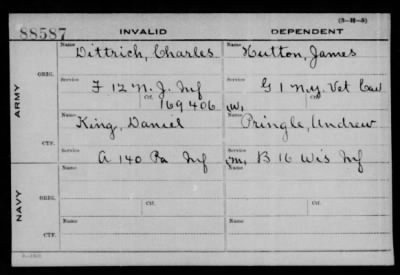 (3-H-5)
88587 INVALID DEPENDENT
Name Dittrich, Charles Name Hutton, James
ORIG.
Service F 12 N. J. Inf Service G 1 N.Y. Vet Cav
Ctf. 169 406 W,
ARMY
Name King, Daniel Name Pringle, Andrew
CTF.
Service A 140 Pa Inf Service m, B 16 Wis Inf
Name Name
ORIG.
Service Service
Ctf. Ctf.
NAVY
Name Name
CTF.